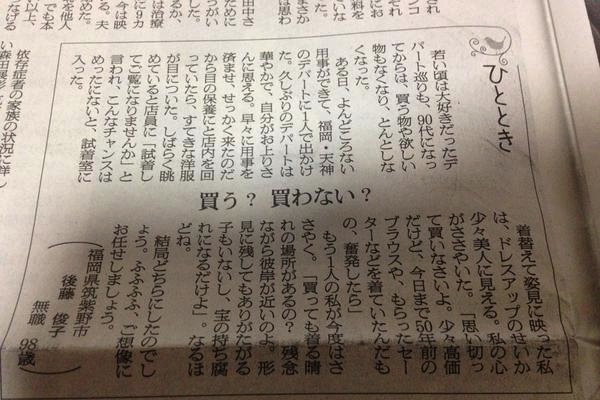 ひととき
買う？ 買わない？
若い頃は大好きだったデ
パート巡りも、90代になっ
てからは、買う物や欲しい
物もなくなり、とんとしな
くなった。
ある日、よんどころない
用事ができて、福岡・天神
のデパートに1人で出かけ
た。久しぶりのデパートは
華やかで、自分がお上りさ
んに思える。早々に用事を
済ませ、せっかく来たのだ
から目の保養にと店内を回
っていたら、すてきな洋服
が目についた。しばらく眺
めていると店員に「試着し
てご覧になりませんか」と
言われ、こんなチャンスは
めったにないと、試着室に
入った。
着替えて姿見に映った私
は、ドレスアップのせいか
少々美人に見える。私の心
がささやいた。「思い切っ
て買いなさいよ。少々高価
だけど、今日まで50年前の
ブラウスや、もらったセー
ターなどを着ていたんだも
の、奮発したら」
もう1人の私が今度はさ
さやく。「買っても着る晴
れの場所があるの？ 残念
ながら彼岸が近いのよ。形
見に残してもありがたがる
子もいないし、宝の持ち腐
れになるだけよ」。なるほ
どね。
結局どちらにしたのでし
ょう。ふふふふ、ご想像に
お任せしましょう。
（福岡県筑紫野市
後藤 俊子
無職 98歳）
依存症者の家族の状況に詳し